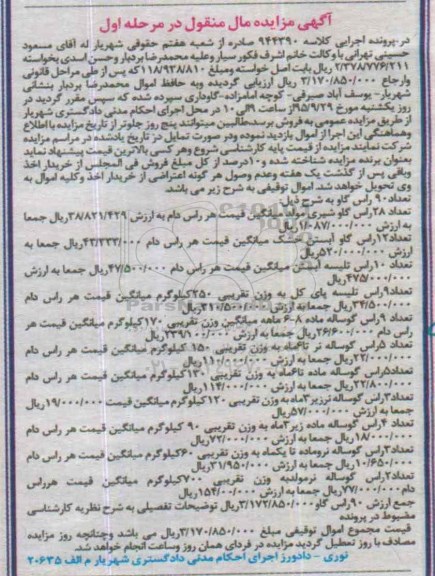 آگهی مزایده مال منقول در مرحله اول
در پرونده اجرایی کلاسه ۹۴۴۳۹۰ صادره از شعبه هفتم حقوقی شهریار له آقای مسعود
حسینی تهرانی با وکالت خانم اشرف فکور سیار وعلیه محمدرضا بردبار وحسن اسدی بخواسته
۲/۳۷۸/۷۷۶/۲۱۱ ریال بابت اصل خواسته ومبلغ ۱۱۸/۹۳۸/۸۱۰که پس از طی مراحل قانونی
وارجاع ۳/۱۷۰/۸۵۰/۰۰۰ ریال ارزیابی گردیده وبه حفاظ اموال محمدرضا بردبار بنشانی
شهریار- یوسف آباد صیرفی- کوچه امامزاده-گاوداری سپرده شده که سپس مقرر گردید در
روز یکشنبه مورخ ۹۵/۹/۲۸ از ساعت ۹الی ۱۰ در محل اجرای احکام مدنی دادگستری شهریار
از طریق مزایده عمومی به فروش برسد،طالبین میتوانند پنج روز جلوتر از تاریخ مزایده با اطلاع
وهماهنگی این اجرا از اموال بازدید نموده ودر صورت تمایل در تاریخ یادشده در مراسم مزایده
شرکت نمایند مزایده از قیمت پایه کارشناسی شروع وهر کس بالاترین قیمت پیشنهاد نماید
بعنوان برنده مزایده شناخته شده و۱۰درصد از کل مبلغ فروش فی المجلس از خریدار اخذ
وباقی پس از گذشت یک هفته وعدم وصول هر گونه اعتراضی از خریدار اخذ وکلیه اموال به
وی تحویل خواهد شد. اموال توقیفی به شرح زیر می باشد.
تعداد۹۰ راس گاو به شرح ذیل:
تعداد ۲۸راس گاو شیری مولد میانگین قیمت هر راس دام به ارزش ۳۸/۸۲۱/۴۲۹ریال جمعا
به ارزش ۱/۰۸۷/۰۰۰/۰۰۰ریال
تعداد۱۲راس گاو آبستن خشک میانگین قیمت هر راس دام ۴۳/۳۳۳/۰۰۰ریال جمعا به
ارزش ۵۲۰/۰۰۰/۰۰۰ریال
تعداد ۱۰راس تلیسه آبستن میانگین قیمت هر راس دام ۴۷/۵۰۰/۰۰۰ریال جمعا به ارزش
۴۷۵/۰۰۰/۰۰۰ریال
تعداد۹راس تلیسه پای کل به وزن تقریبی ۲۵۰کیلوگرم میانگین قیمت هر راس دام
۳۴/۵۰۰/۰۰۰ریال جمعا به ارزش ۳۱۰/۵۰۰/۰۰۰ریال
تعداد ۹ راس گوساله ماده ۸-۶ ماهه میانگین وزن تقریبی ۱۷۰کیلوگرم میانگین قیمت هر
راس دام ۲۶/۶۰۰/۰۰۰ریال جمعا به ارزش ۲۳۹/۱۰۰/۰۰۰ریال
تعداد ۵راس گوساله نر تا۶ماه به وزن تقریبی ۱۵۰ کیلوگرم میانگین قیمت هر راس دام
۲۲/۰۰۰/۰۰۰ریال جمعا به ارزش ۱۱۰/۰۰۰/۰۰۰ریال
تعداد۵راس گوساله ماده تا۶ماه به وزن تقریبی ۱۳۰کیلوگرم میانگین قیمت هر راس دام
۲۲/۸۰۰/۰۰۰ریال جمعا به ارزش ۱۱۴/۰۰۰/۰۰۰ریال
تعداد۳راس گوساله نرزیر۳ماه به وزن تقریبی ۱۲۰کیلوگرم میانگین قیمت ۱۹/۰۰۰/۰۰۰ریال
جمعا به ارزش ۵۷/۰۰۰/۰۰۰ریال
تعداد ۴راس گوساله ماده زیر۳ماه به وزن تقریبی ۹۰ کیلوگرم میانگین قیمت هر راس دام
۱۸/۰۰۰/۰۰۰ریال جمعا به ارزش ۷۲/۰۰۰/۰۰۰ریال
تعداد۳راس گوساله نروماده تا یکماه به وزن تقریبی ۶۰کیلوگرم میانگین قیمت هر راس دام
۱۰/۶۵۰/۰۰۰ریال جمعا به ارزش ۳۱/۹۵۰/۰۰۰ریال
تعداد۲راس گوساله نرمولدبه وزن تقریبی ۷۰۰کیلوگرم میانگین قیمت هرراس
دام۷۷/۰۰۰/۰۰۰ریال جمعا به ارزش ۱۵۴/۰۰۰/۰۰۰ریال
جمع ارزش ۹۰راس گاو۳/۱۷۲/۸۵۰/۰۰۰ریال توضیحات تفصیلی به شرح نظریه کارشناسی
مضبوط در پرونده
قیمت مجموع اموال توقیفی مبلغ ۳/۱۷۰/۸۵۰/۰۰۰ریال می باشد وچنانچه روز مزایده
مصادف با روز تعطیل گردید مزایده در فردای همان روز وساعت انجام خواهد شد.
نوری - دادورز اجرای احکام مدنی دادگستری شهریار م الف ۲۰۶۳۵